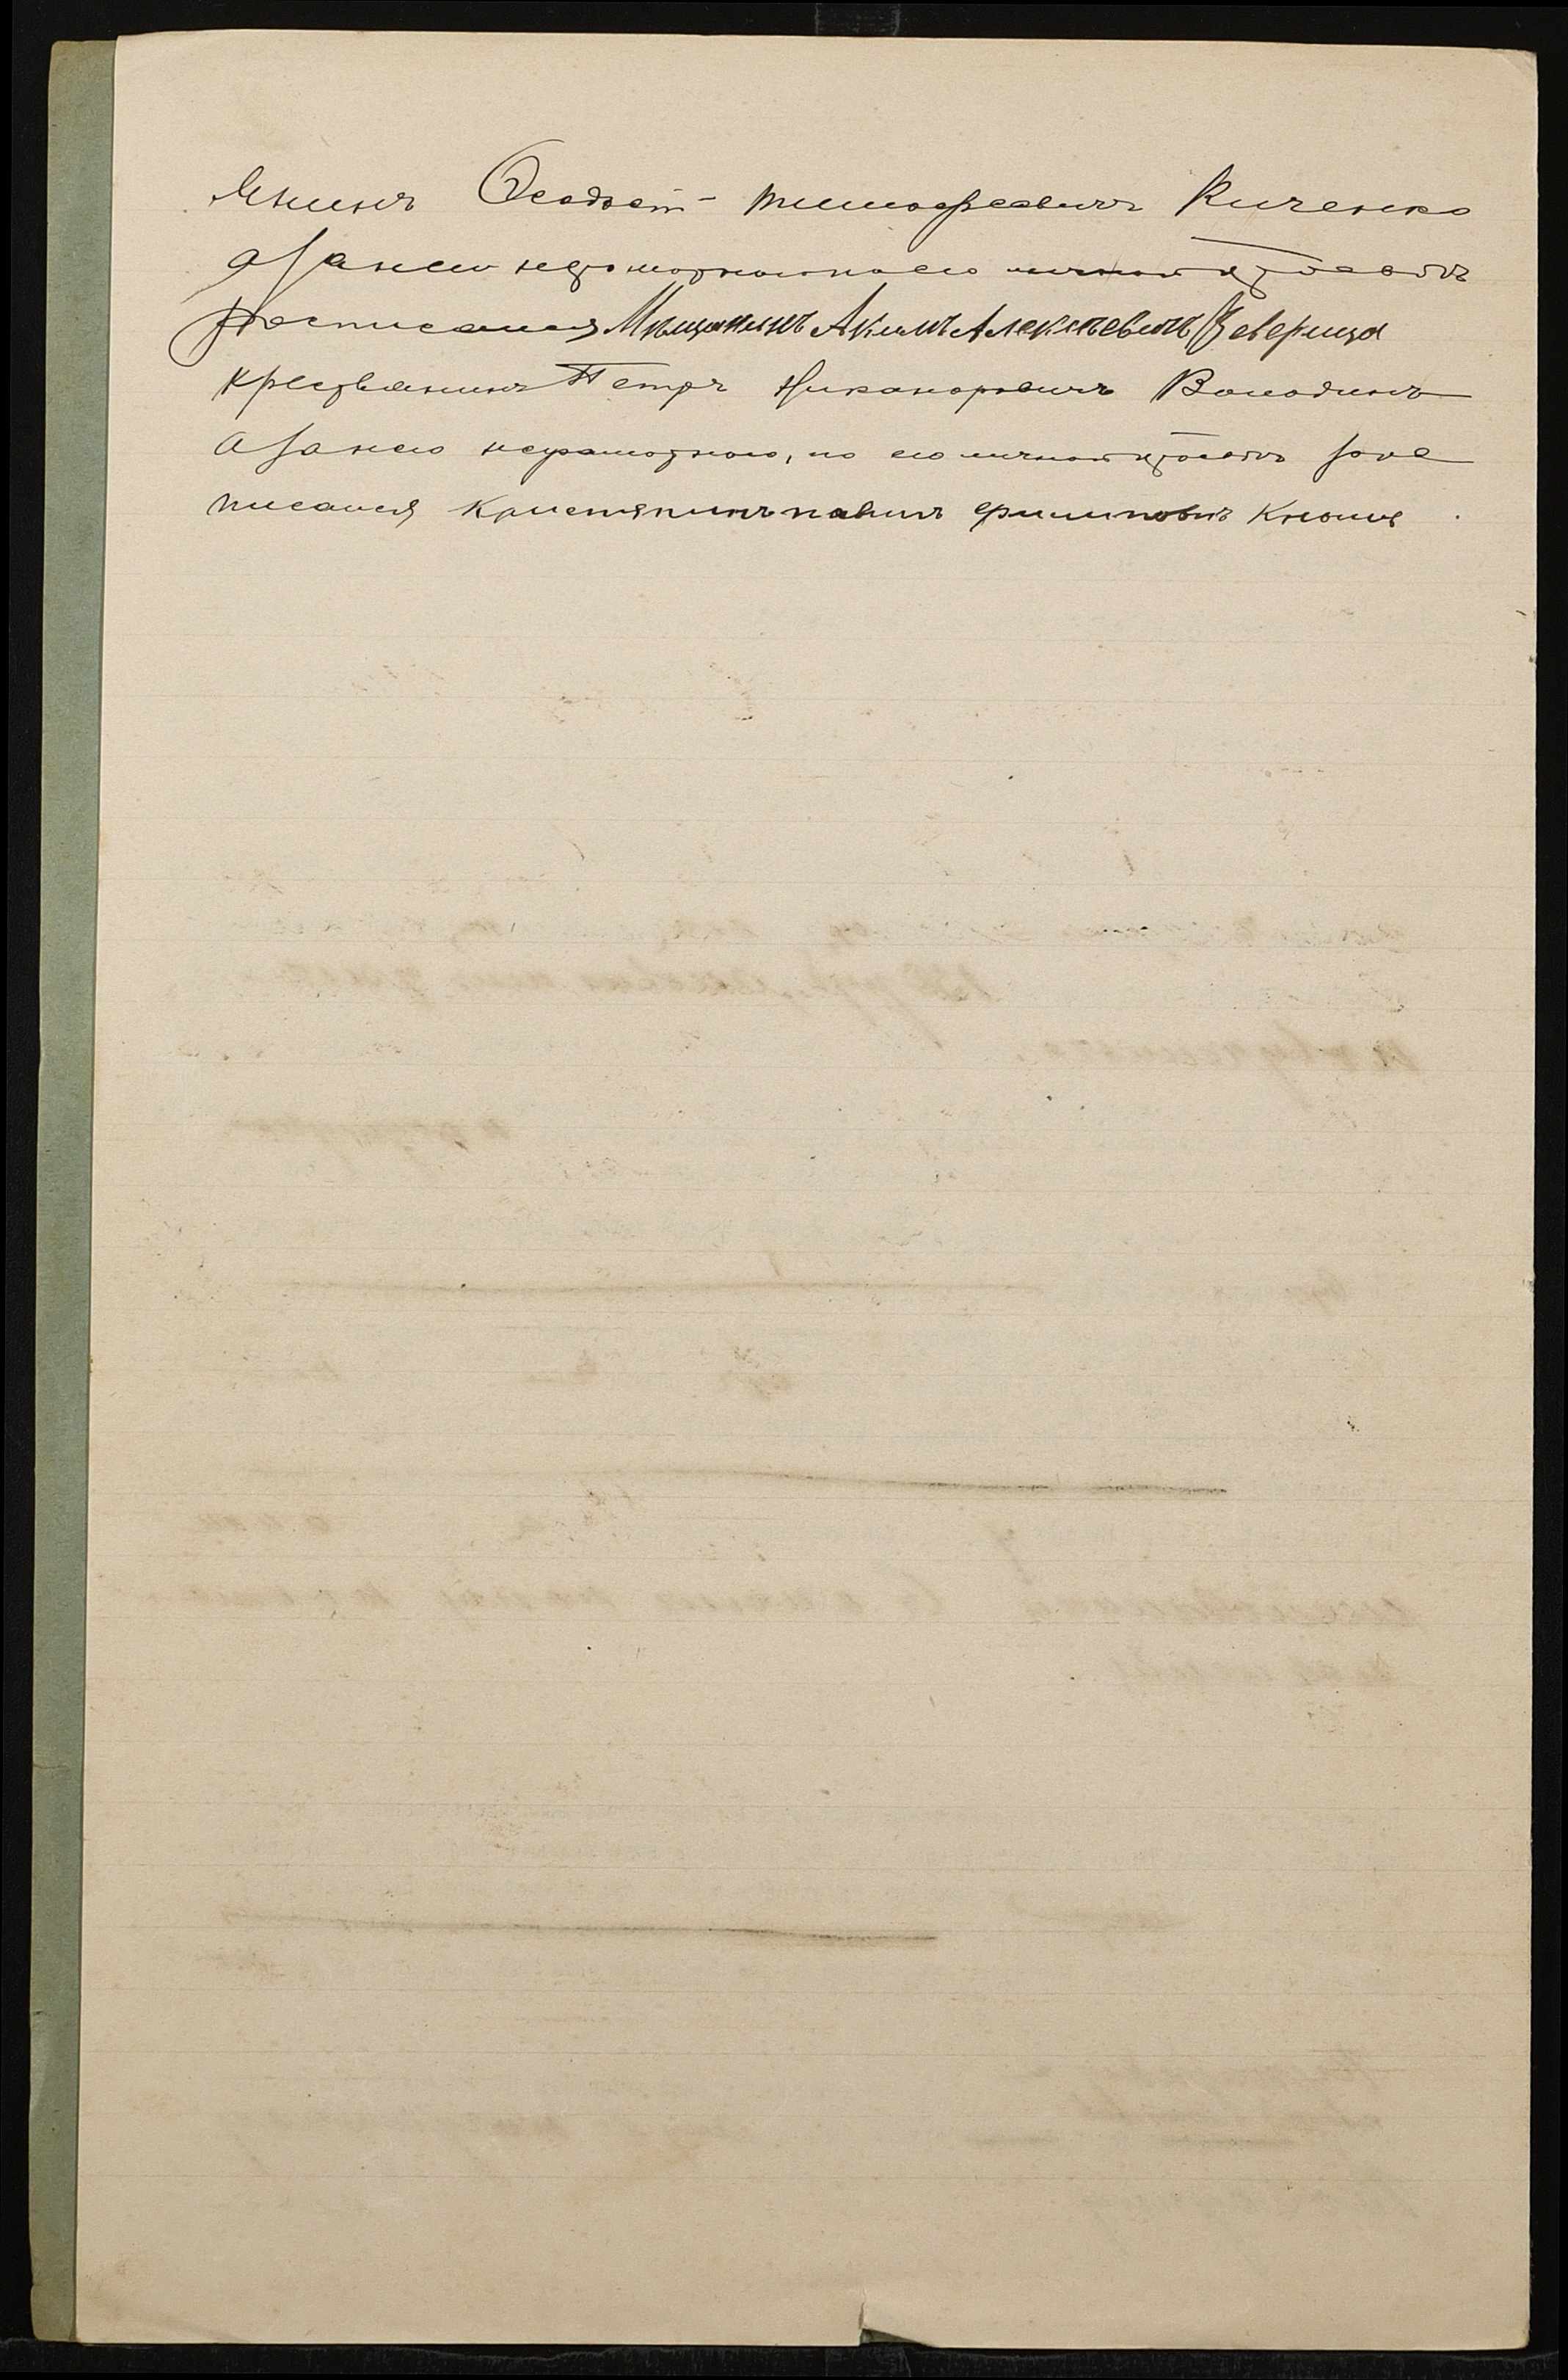 янинъ Ѳеодосій Тимофеевичъ Киченко
а занего неграмотнаго поего личной прозьбѣ
росписался Мѣщанинъ Акимъ Алексѣевичъ Чеверица
Крестьянинъ Петръ Никаноровичъ Володинъ
а занего неграмотнаго, по его личной прозьбѣ рос
писался Кристянинъ павилъ филиповъ